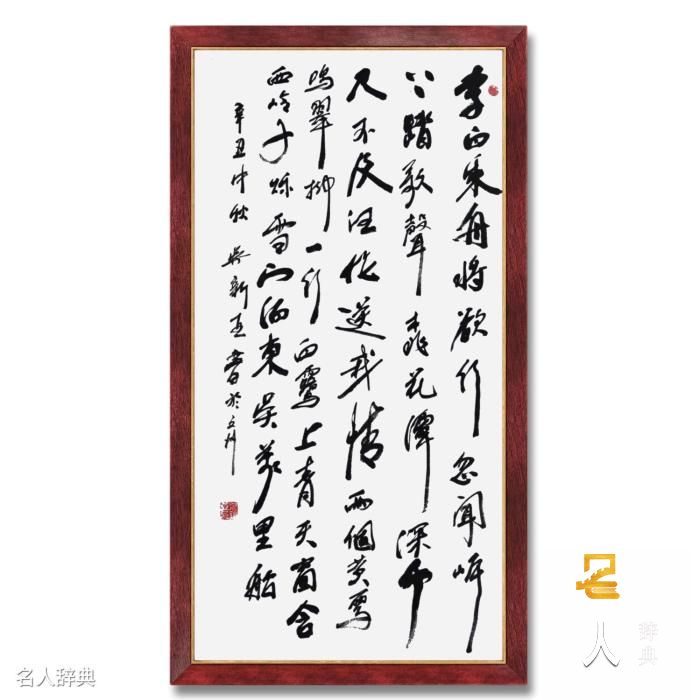 李白乘舟將欲行忽聞岸
上踏歌聲桃花潭深千
尺不及汪倫送我情兩個黃鸝
鳴翠柳一行白鷺上青天窗含
西嶺千秋雪門泊東吳萬里船
辛丑中秋吳新書於州
名人辞典
名人辞典